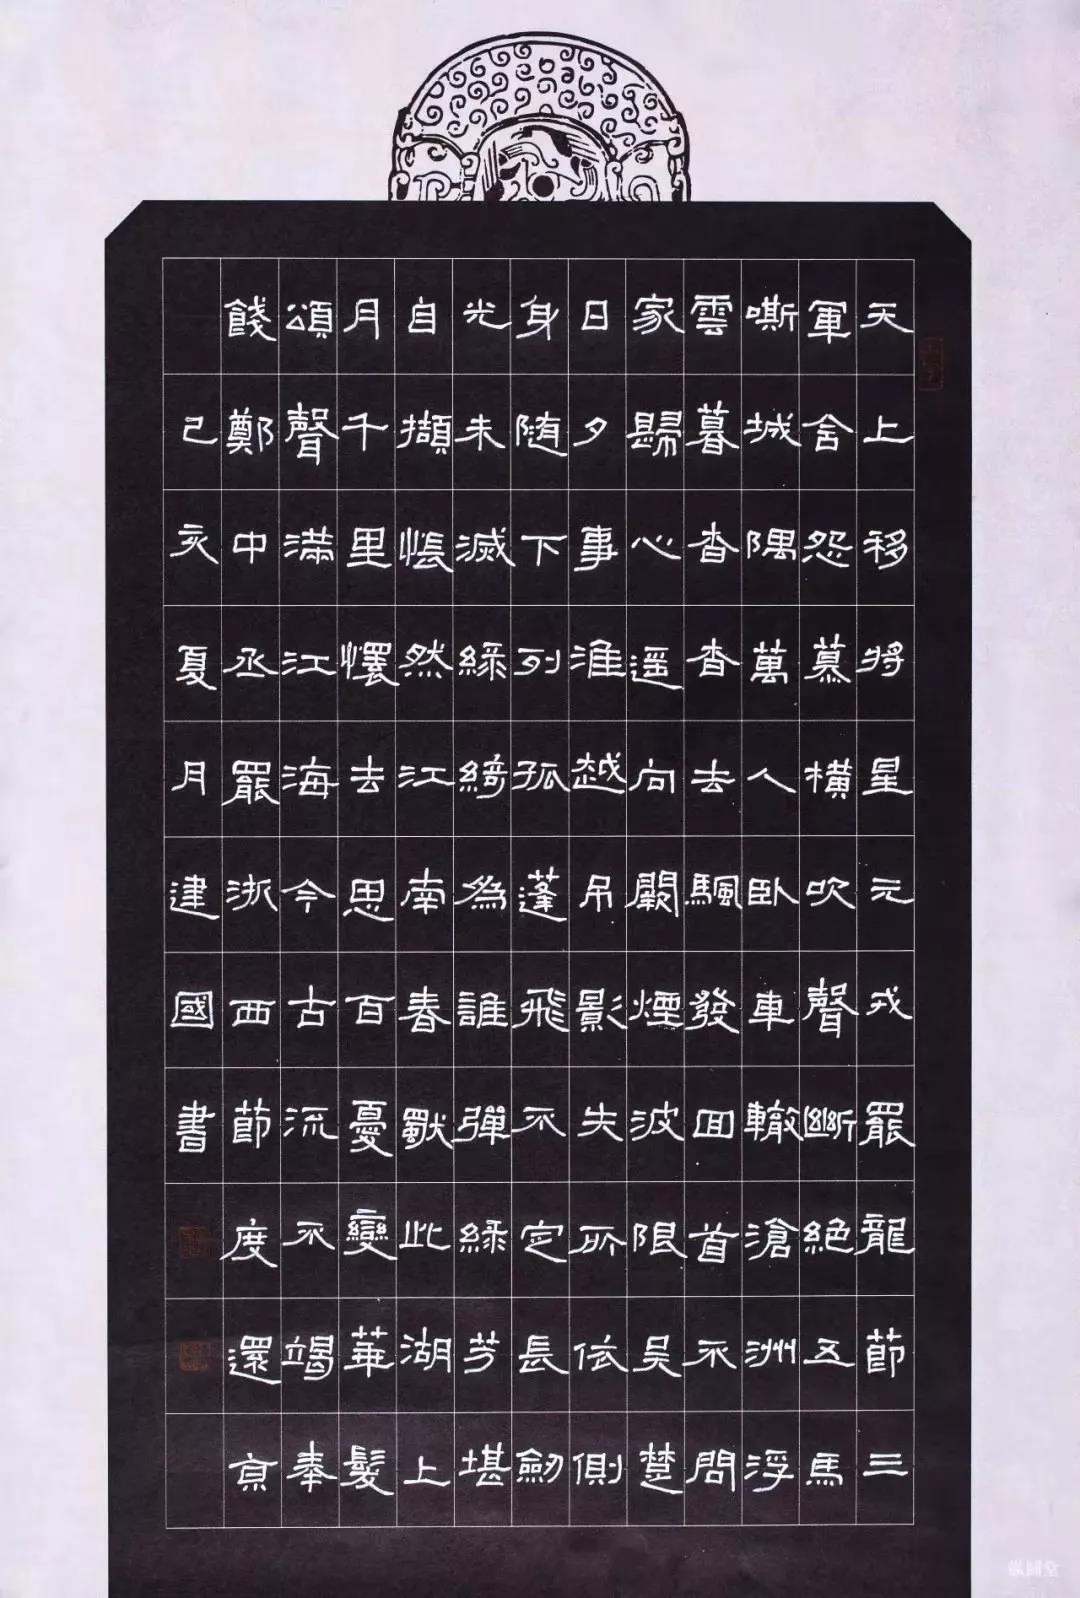 天上移将星元戎罷龍節三
軍舍怨慕橫吹聲斷絕五馬
嘶城隅萬人臥車轍滄洲浮
雲暮杳杳去颿發回首不問
家歸心遥向闕煙波限吳楚
日夕事淮越吊影失所依側
身随下列孤蓬飛不定長劒
光未滅綠綺為誰彈綠芳堪
自擷悵然江南春獨此湖上
月千里懷去思百憂變華髮
頌聲满江海今古流不竭奉
餞鄭中丞罷浙西節度還京
己亥夏月建國書